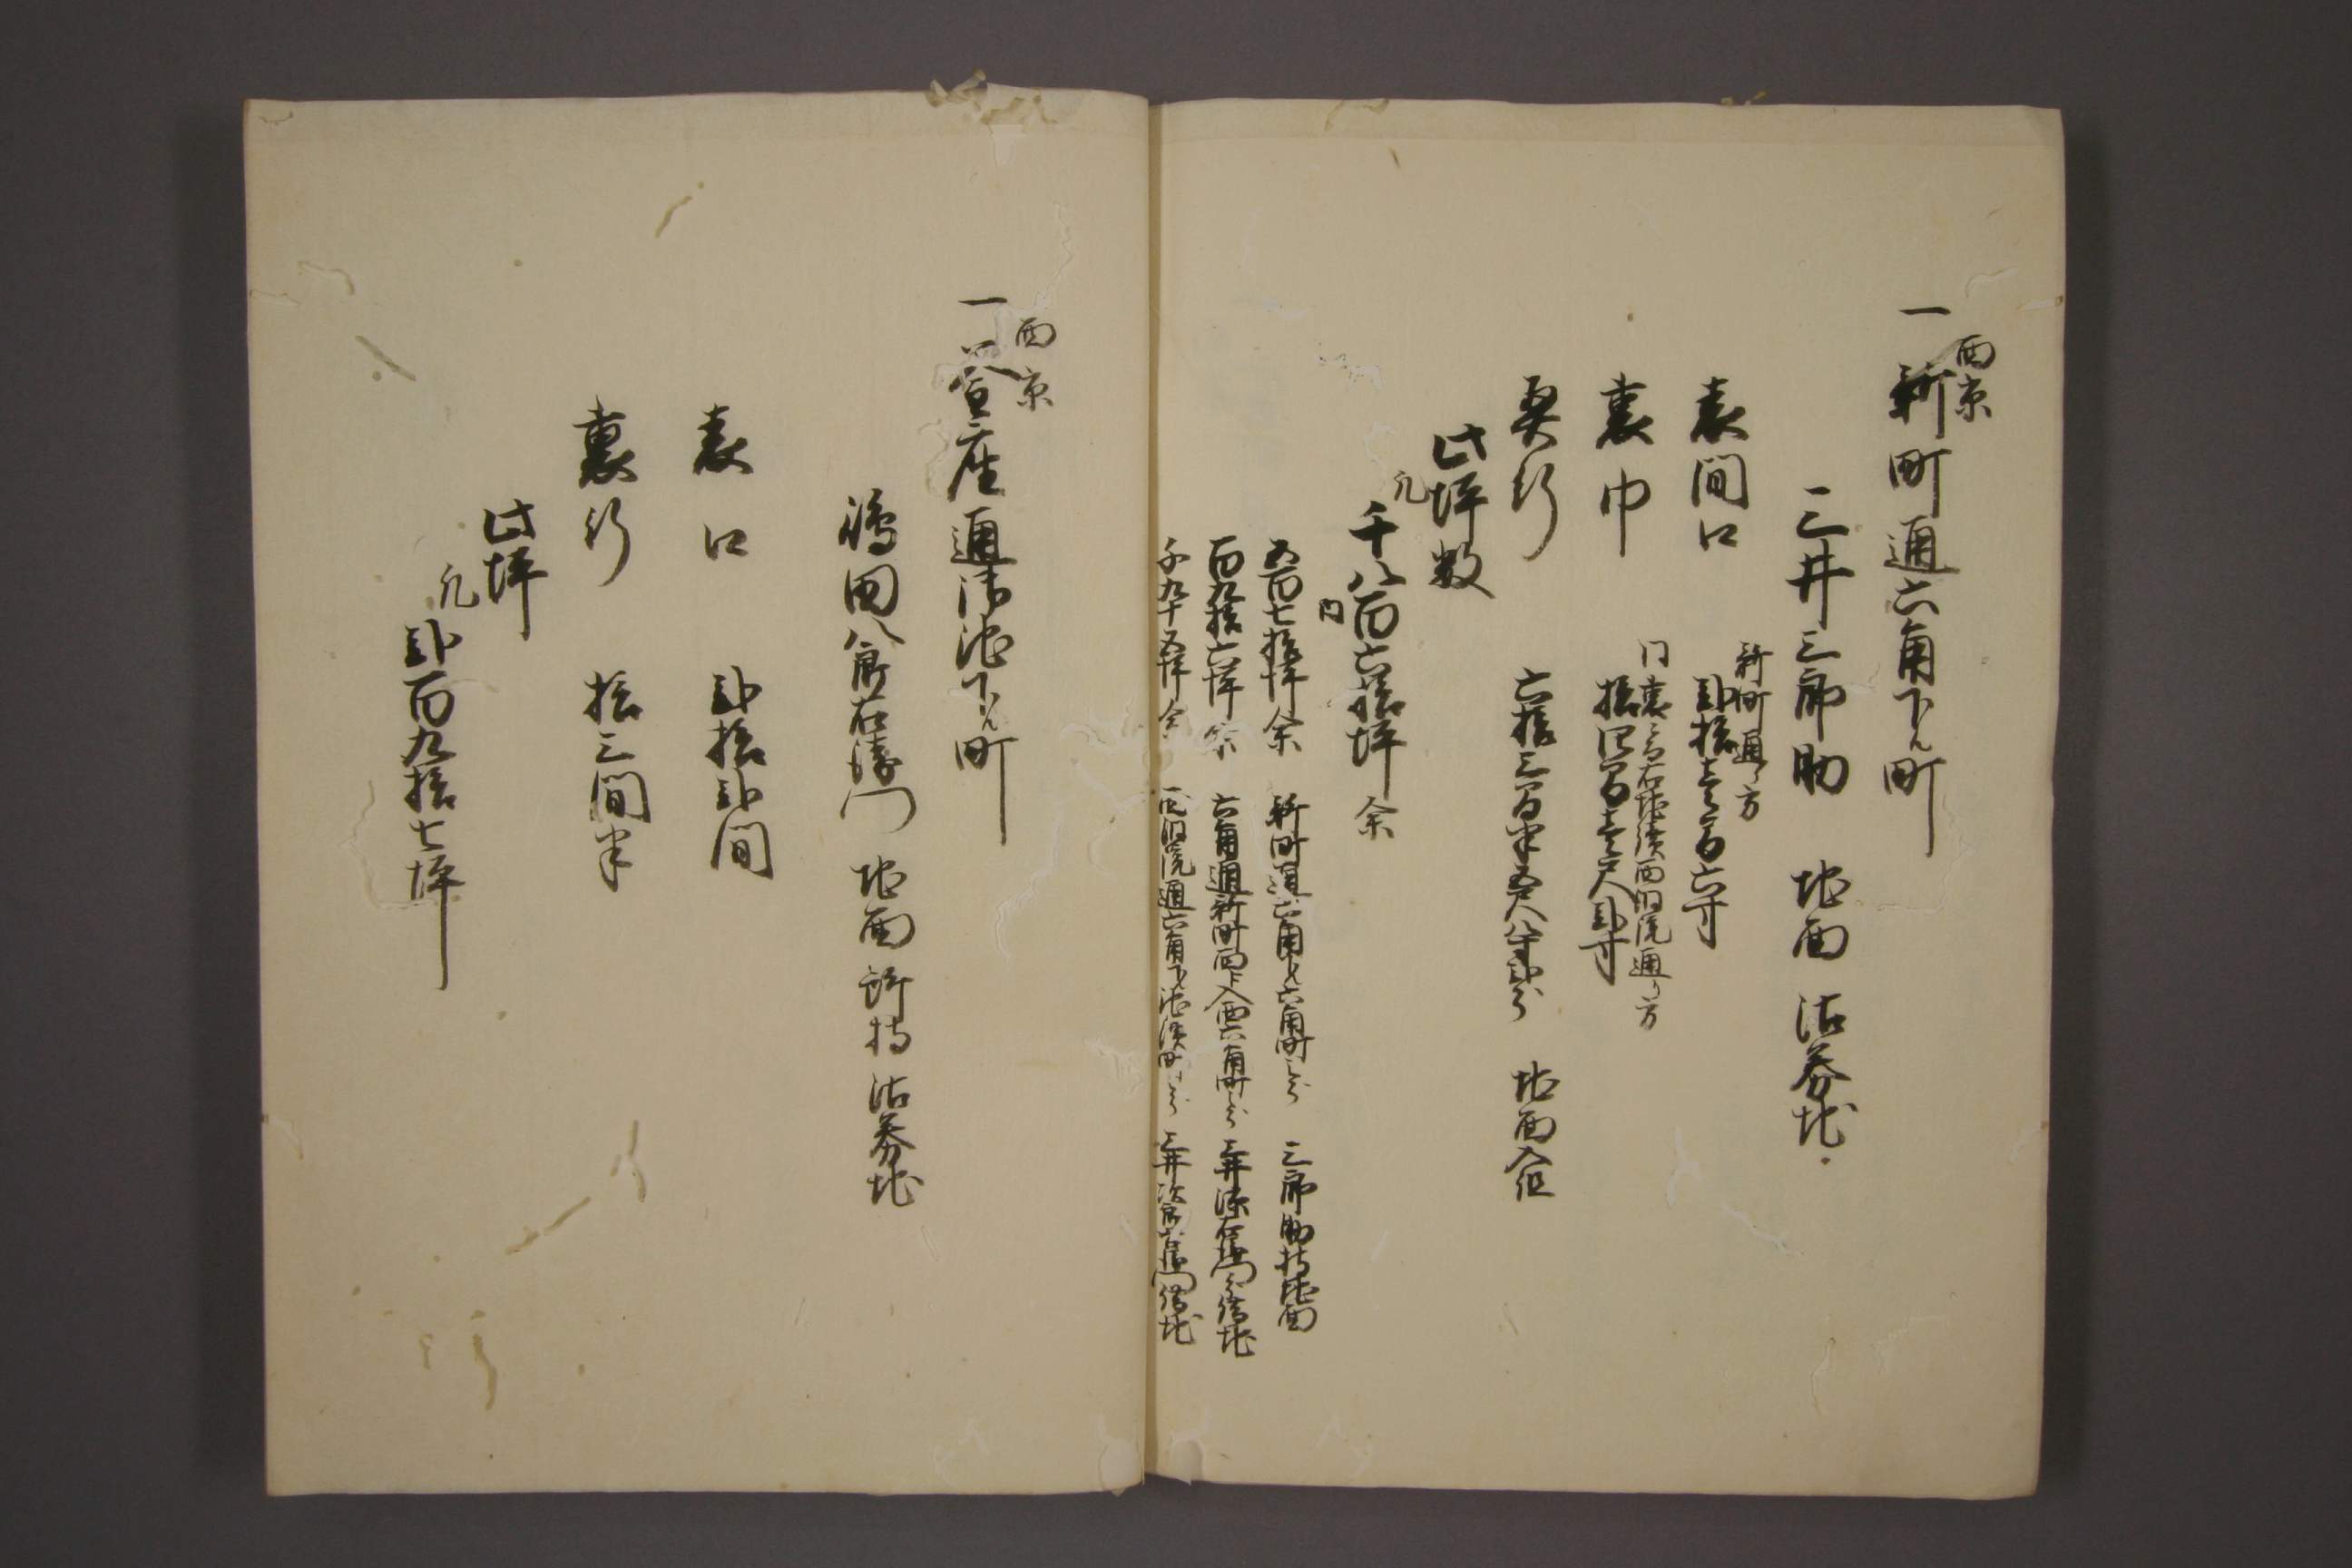 西京
一新町通六角下ル町
三井三郎助 地面 沽券地
新町通り方
表間口 弐拾壱間六寸
同裏ニ而右地続西洞院通り方
裏巾 拾四間壱尺弐寸
奥行 六拾三間半五尺八寸弐分 地面入組
此坪数
凡千八百六拾坪余
内
五百七拾坪余 新町通六角下ル六角町分 三郎助持地面
百九拾六坪余 六角通新町西江入西六角町分 三井源右衛門借地
千九十五坪余 西洞院通六角下ル池須町分 三井次郎右衛門借地
西京
一釜座通御池下ル町
嶋田八郎右衛門 地面 所持 沽券地
表口 弐拾弐間
裏行 拾三間半
此坪
凡弐百九拾七坪